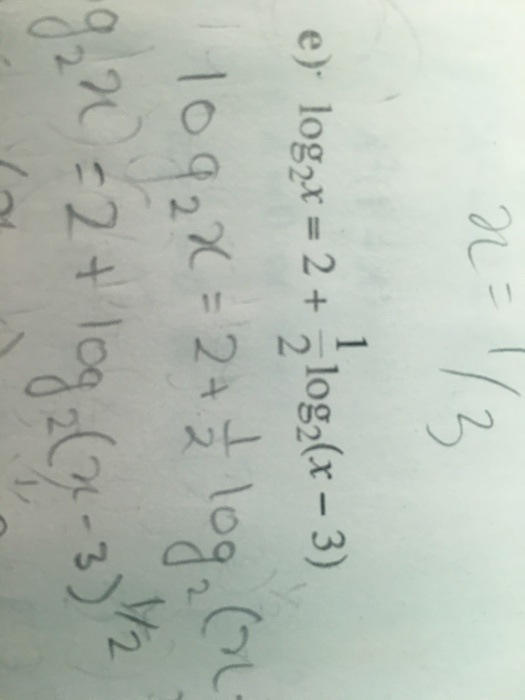 x = 1/3
e) log₂x = 2 + 1/2 log₂(x − 3)
log₂x = 2 + 1/2 log₂(x
g₂x) = 2 + log₂(x - 3)^1/2